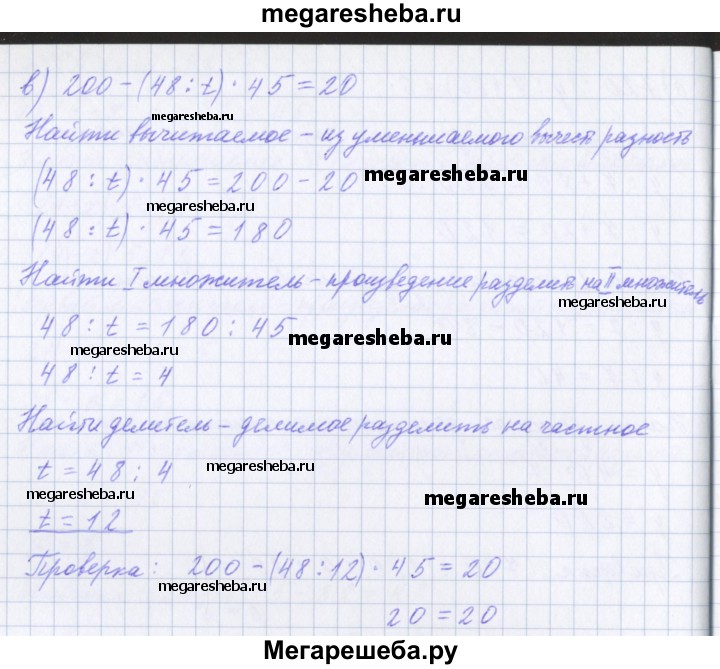 megaresheba.ru
в) 200 - (48 : t) · 45 = 20
megaresheba.ru
Найти вычитаемое - из уменьшаемого вычест разность
(48 : t) · 45 = 200 - 20
megaresheba.ru
megaresheba.ru
(48 : t) · 45 = 180
Найти I множитель - произведение разделить на II множитель
megaresheba.ru
48 : t = 180 : 45
megaresheba.ru
megaresheba.ru
48 : t = 4
Найти делитель - делимое разделить на частное
t = 48 : 4
megaresheba.ru
megaresheba.ru
megaresheba.ru
t = 12
Проверка: 200 - (48 : 12) · 45 = 20
megaresheba.ru
20 = 20
Мегарешеба.ру